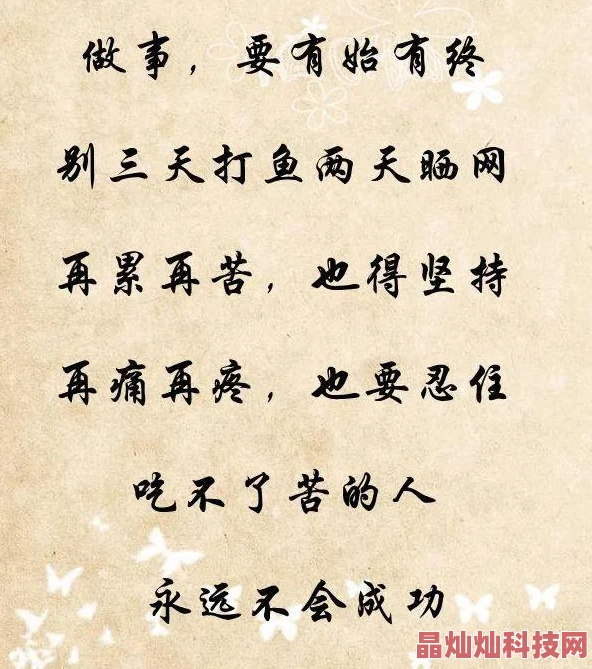 做事，要有始有终
别三天打鱼两天晒网
再累再苦，也得坚持
再痛再疼，也要忍住
吃不了苦的人
永远不会成功
晶灿灿科技网